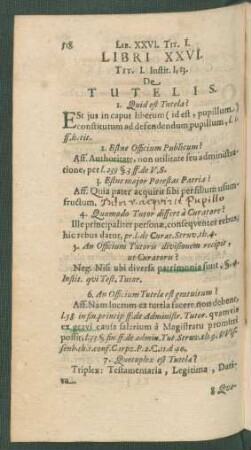 518 LIB. XXVI. TIT. I.
LIBRI XXVI.
TIT. I. Instit. l. 13.
De
TUTELIS.
1. Quid est Tutela?
Est jus in caput liberum (id est, pupillum)
constitutum ad defendendum pupillum, l. 1.
ff. h. tit.
2. Estne Officium Publicum?
Aff. Authoritate, non utilitate seu administra-
tione, per l. 255 § 3 ff. de V. S.
3. Estne major Potestas Patria?
Aff. Quia pater acquirit sibi persæpe usum
fructum, Tutor acquirit Pupillo
4. Quomodo Tutor differt à Curatore?
Ille principaliter personæ, consequenter rebus
hic rebus datur, pr. l. de Curat. Struv. th. 4.
5. An Officium Tutoris divisionem recipit,
ut Curatoris?
Neg. Nisi ubi diversa patrimonia sunt, §. 4.
Instit. qui Test. Tutor.
6. An Officium Tutela est gratuitum?
Aff. Nam lucrum ex tutela facere non debent,
l. 58 in fu princip ff. de Administr. Tutor. quamvis
ex gravi causa salarium à Magistratu promitti
possit, l. 33 § fin ff. de admin. Tut.
7. Quotuplex est Tutela?
Triplex: Testamentaria, Legitima, Dati-
va..
8 Quo-